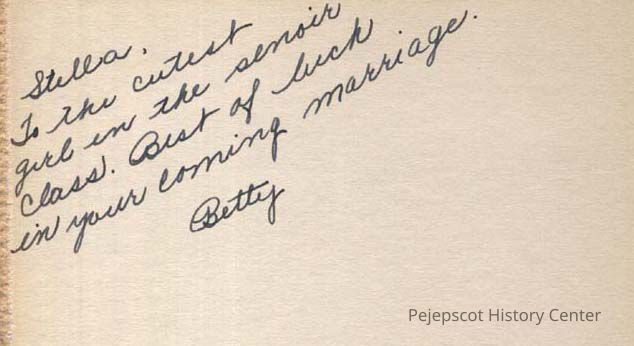 Stella,
To the cutest
girl in the senoir
class. Best of luck
in your coming marriage.
Betty
Pejepscot History Center